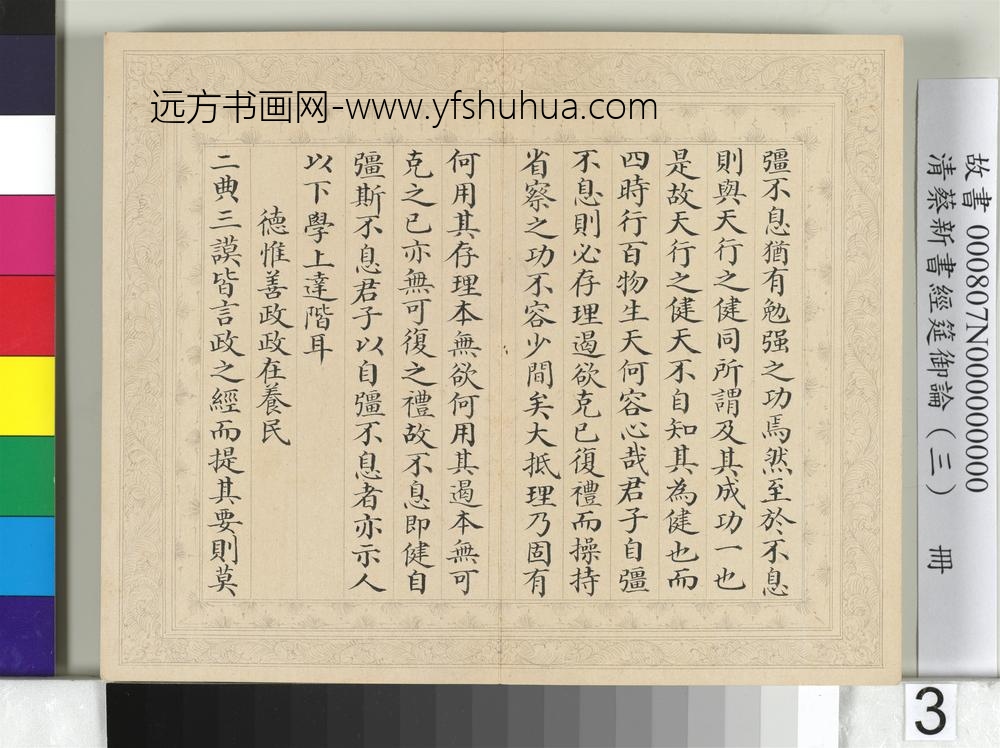 远方书画网-www.yfshuhua.com
彊不息猶有勉强之功焉然至於不息
則與天行之健同所謂及其成功一也
是故天行之健天不自知其為健也而
四時行百物生天何容心哉君子自彊
不息則必存理遏欲克己復禮而操持
省察之功不容少間矣大抵理乃固有
何用其存理本無欲何用其遏本無可
克之己亦無可復之禮故不息即健自
彊斯不息君子以自彊不息者亦示人
以下學上達階耳
德惟善政政在養民
二典三謨皆言政之經而提其要則莫
故書 000807N000000000
清蔡新書經筵御論（三） 冊
3